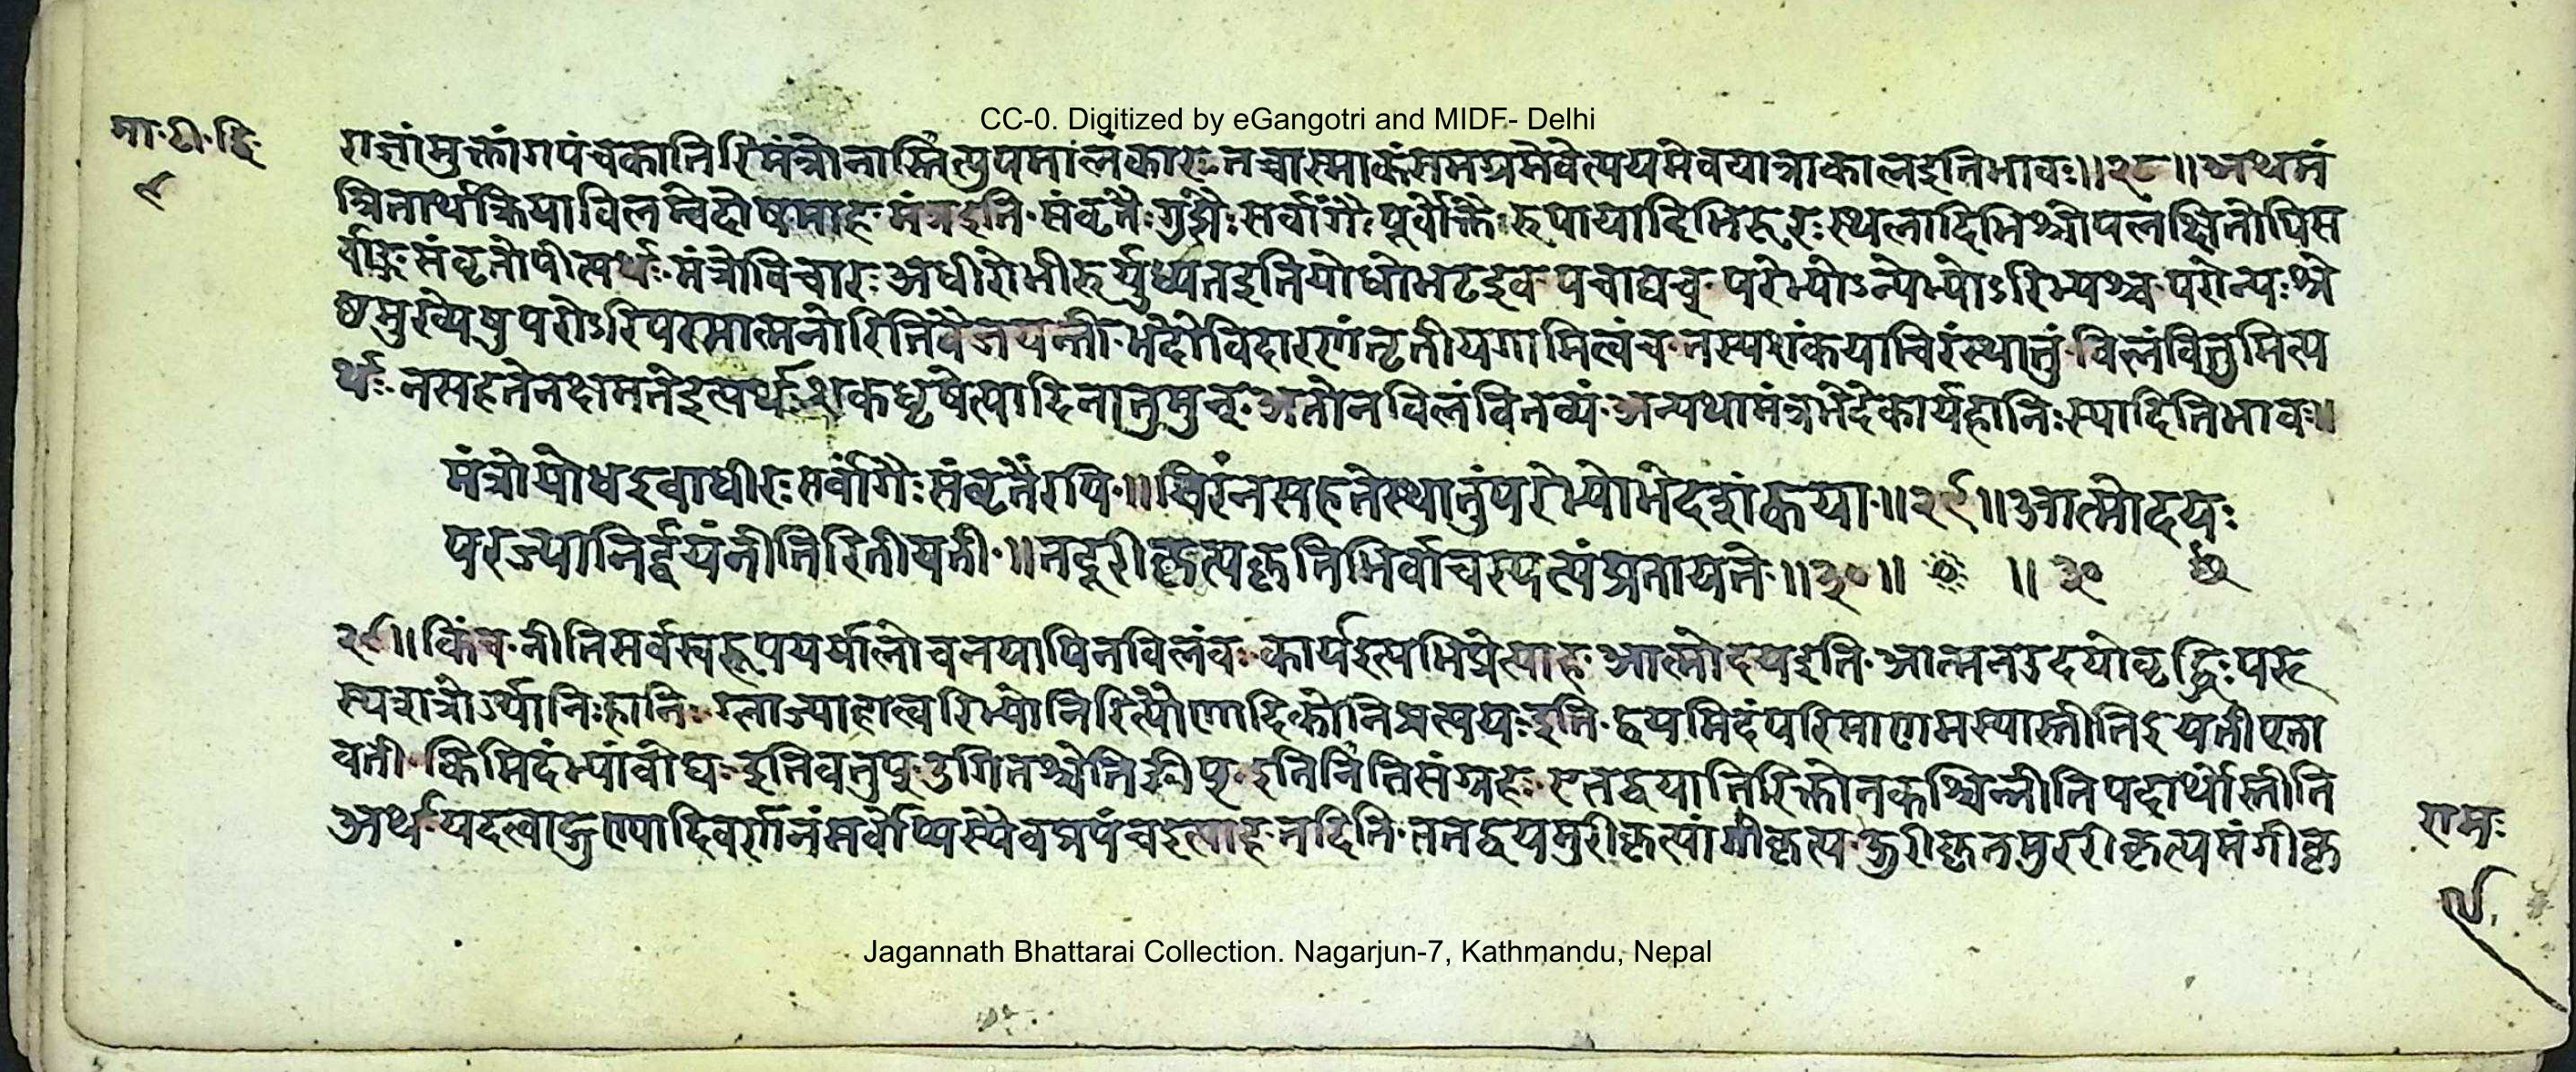 CC-0. Digitized by eGangotri and MIDF- Delhi
मा॰टी॰द्वि॰
९
राज्ञांमुक्तांगपंचकातिरिमंत्रोनास्तित्युपमालंकारः तच्चास्माकंसमग्रमेवेत्ययमेवयात्राकालइतिभावः॥२८॥अथमं
त्रितार्थक्रियाविलम्वेदोषमाह॰मंत्रइति॰संवृतैःगुप्तैःसर्वांगैःपूर्वोक्तैःरुपायादिभिरूरःस्थलादिभिश्चोपलक्षितोपिस
र्वांङ्गसंवृतोपीत्यर्थः॰मंत्रोविचारःअधीरोभीरुर्युध्यतइतियोधोभटइव॰पचाद्यच्॰परेभ्योऽन्येभ्योऽरिभ्यश्च॰परोन्यःश्रे
ष्ठमुख्येषुपरोऽरिपरमात्मनोरितिवैजयन्ती॰भेदोविदारणंतृतीयगामित्वंच॰तस्यशंकयाचिरंस्थातुं॰विलंवितुमित्य
र्थः॰नसहतेनक्षमतेइत्यर्थः॰शकधृषेत्यादिनातुमुन्॰अतोनविलंवितव्यं॰अन्यथामंत्रभेदेकार्यहानिःस्यादितिभावः॥
मंत्रोयोधइवाधीरःसर्वांगैःसंवृतैरपि॰॥चिरंनसहतेस्थातुंपरेभ्योभेदशंकया॰॥२९॥आत्मोदयः
परज्यानिर्द्वयंनीतिरितीयती॰॥तदूरीकृत्यकृतिभिर्वाचस्पत्यंप्रतायते॰॥३०॥ ॥३०
२९॥किंच॰नीतिसर्वस्वरूपपर्यालोचनयापिनविलंवः॰कार्यइत्यभिप्रेत्याह॰आत्मोदयइति॰आत्मनउदयोवृद्धिःपर
स्यशत्रोर्ज्यानिःहानिः॰ग्लाज्याहात्वरिभ्योनिरित्यौणादिकोनिप्रत्ययःइति॰द्वयमिदंपरिमाणमस्यास्तीतिइयतीएता
वती॰किमिदंभ्यांवोघः॰इतिवतुप्॰उगितश्चेतिङीप्॰इतिनीतिसंग्रहः॰एतद्वयातिरिक्तोनकश्चिन्नीतिपदार्थोस्तीति
अर्थः॰यदत्वाड्गुण्यादिवर्णनंसर्वोप्यस्यैवप्रपंचइत्याह॰तदिति॰ततद्वयमुरीकृत्यांगीकृत्य॰ऊरीकृतमुररीकृत्यमंगीकृ
रामः
९
Jagannath Bhattarai Collection. Nagarjun-7, Kathmandu, Nepal